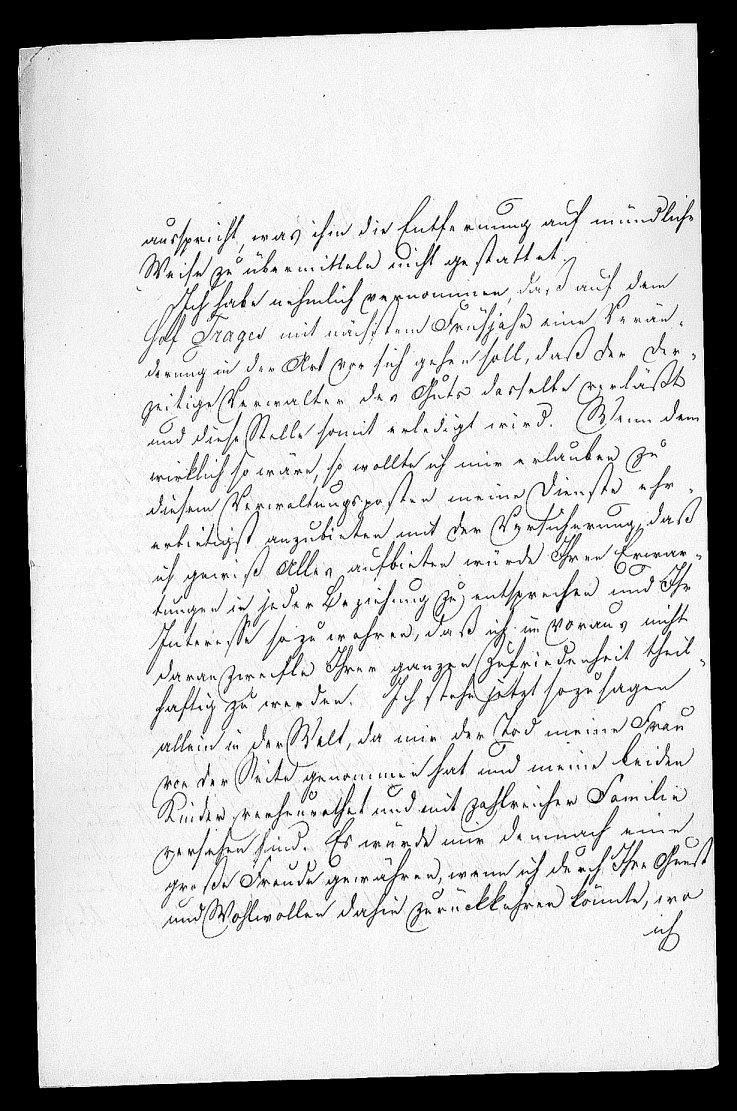 ausspricht, was ihm die Entfernung auf mündliche
Weise zu übermitteln nicht gestattet.
Ich habe nehmlich vernommen, daß auf dem
Hof Trages mit nächstem Frühjahr eine Verän-
derung in der Art vor sich gehen soll, daß der der-
zeitige Verwalter des Guts dasselbe verläßt
und diese Stelle somit erledigt wird. Wenn dem
wirklich so wäre, so wollte ich mir erlauben zu
diesem Verwaltungsposten meine Dienste ehr-
erbietigst anzubieten mit der Versicherung, daß
ich gewiß Alles aufbieten würde Ihren Erwar-
tungen in jeder Beziehung zu entsprechen und Ihr
Interesse so zu wahren, daß ich im voraus nicht
daran zweifle Ihrer ganzen Zufriedenheit theil-
haftig zu werden. Ich stehe jetzt so zu sagen
allein in der Welt, da mir der Tod meine Frau
von der Seite genommen hat und meine beiden
Kinder verheurathet und mit zahlreicher Familie
versehen sind. Es würde mir demnach eine
große Freude gewähren, wenn ich durch Ihre Gunst
und Wohlwollen dahin zurückkehren könnte, wo
ich